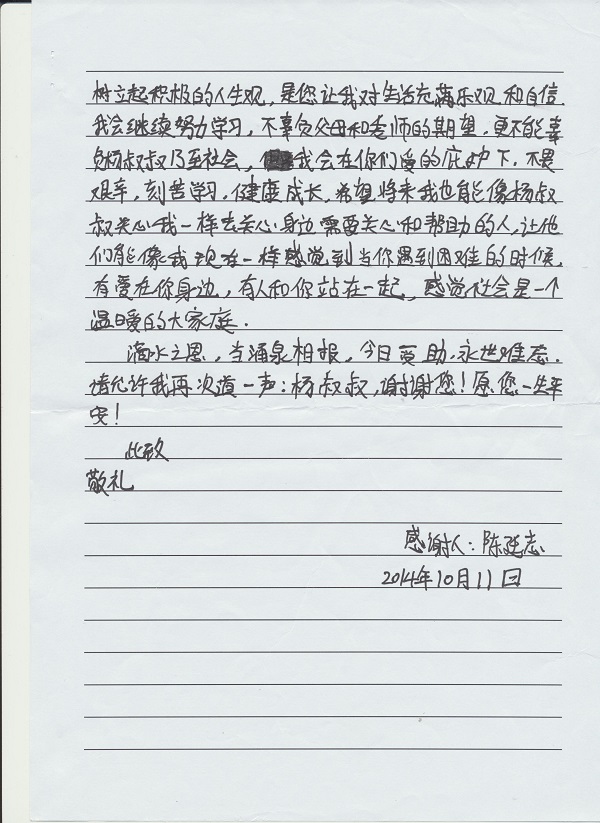 树立起积极的人生观,是您让我对生活充满乐观和自信.
我会继续努力学习,不辜负父母和老师的期望.更不能辜
负杨叔叔乃至社会,我会在你们爱的庇护下,不畏
艰辛,刻苦学习,健康成长,希望将来我也能像杨叔
叔关心我一样去关心身边需要关心和帮助的人,让他
们能像我现在一样感觉到当你遇到困难的时候,
有爱在你身边,有人和你站在一起,感觉社会是一个
温暖的大家庭.
滴水之恩,当涌泉相报,今日受助,永世难忘.
请允许我再次道一声:杨叔叔,谢谢您!愿您一生平
安!
此致
敬礼
感谢人:陈延志
2014年10月11日